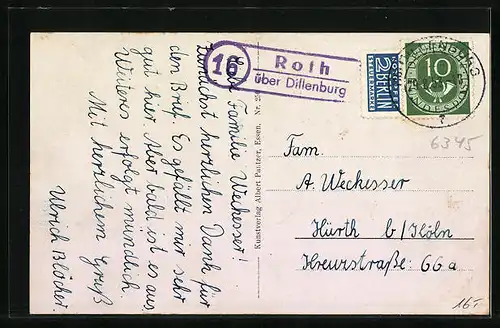 Liebe Familie Weckesser!
Zunächst herzlichen Dank für
den Brief. Es gefällt mir sehr
gut hier. Aber bald ist es aus.
Weiteres erfolgt mündlich.
Mit herzlichem Gruß
Ulrich Blöcher.
16
Roth
über Dillenburg
NOTOPFER
2 BERLIN
STEUERMARKE
10
DEUTSCHE BUNDESPOST
6345
Kunstverlag Albert Pautzer, Essen.
Fam.
A. Weckesser
Hürth b/Köln
Kreuzstraße 66a
16.-